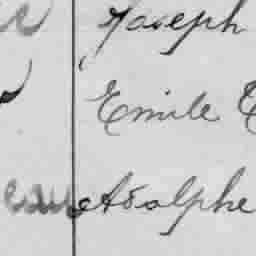 Joseph
Emile
eau Adolphe